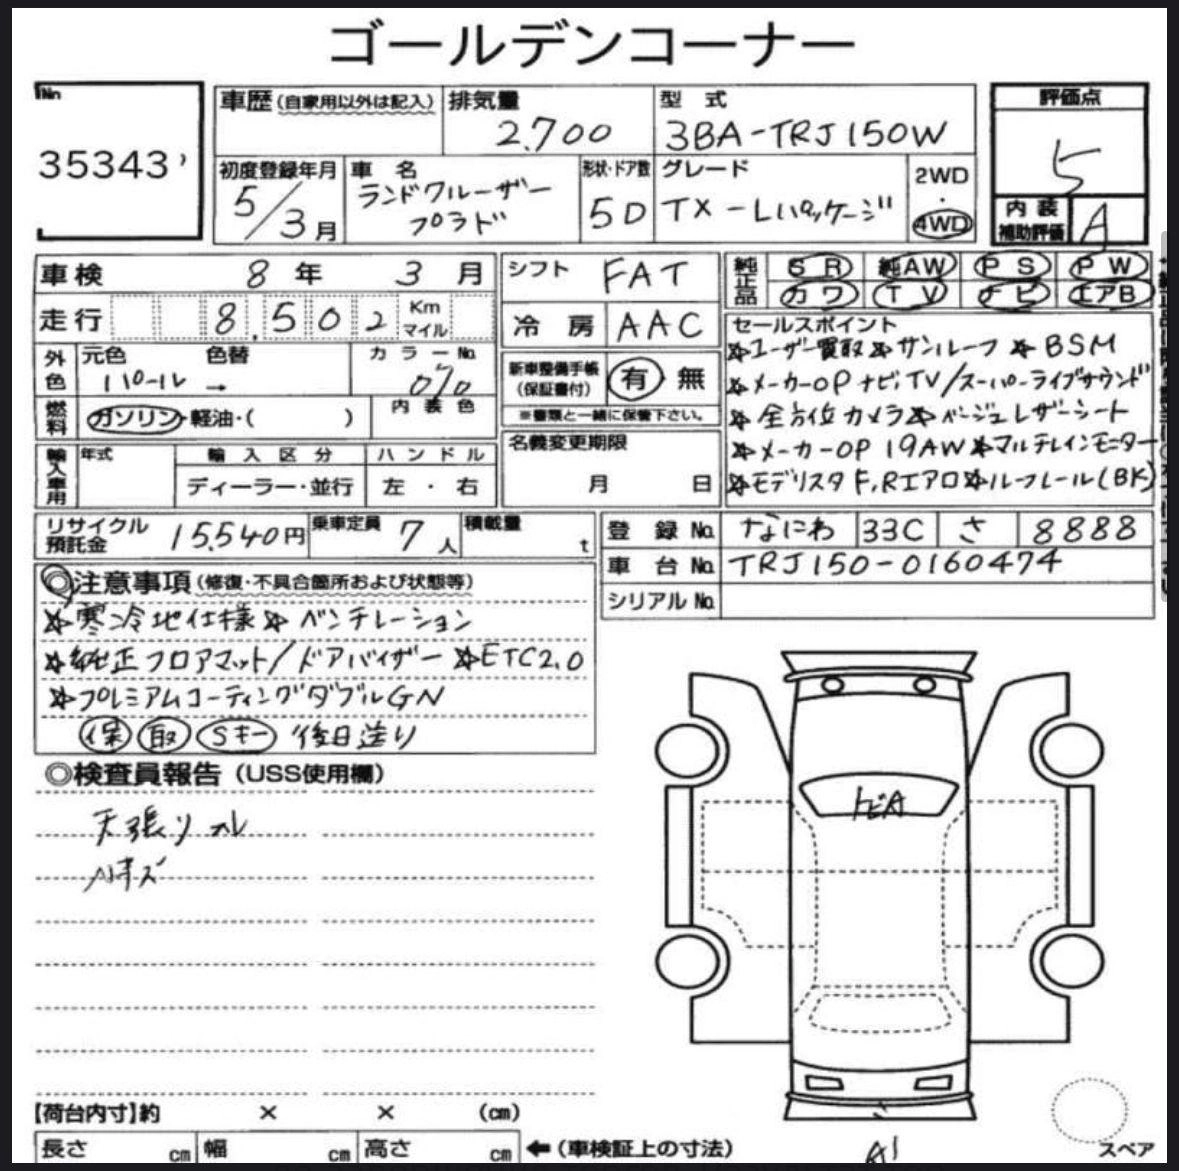 ゴールデンコーナー
No
35343
車歴(自家用以外は記入) 排気量 2,700 型式 3BA-TRJ150W 評価点 5
初度登録年月 5/3月 車名 ランドクルーザープラド 形状・ドア数 5D グレード TX-Lパッケージ 2WD・4WD 内装補助評価 A
車検 8年 3月 シフト FAT 純正品 SR 純AW PS PW
走行 8,502 Km マイル 冷房 AAC カワ TV ナビ エアB
外色 元色 パール 色替 → カラーNo. 070 内装色
燃料 ガソリン・軽油・( )
新車整備手帳(保証書付) 有 無
※書類と一緒に保管下さい。
名義変更期限 月 日
輸入車用 年式 輸入区分 ディーラー・並行 ハンドル 左・右
セールスポイント
☆ユーザー買取☆サンルーフ ☆BSM
☆メーカーOPナビ,TV/スーパーライブサウンド
☆全方位カメラ☆ベージュレザーシート
☆メーカーOP 19AW☆マルチテレインモニター
☆モデリスタF,Rエアロ☆ルーフレール(BK)
リサイクル預託金 15,540円 乗車定員 7人 積載量 t
登録No. なにわ 33C さ 8888
車台No. TRJ150-0160474
シリアルNo.
◎注意事項(修復・不具合箇所および状態等)
☆寒冷地仕様☆ベンチレーション
☆純正フロアマット/ドアバイザー☆ETC2.0
☆プレミアムコーティングダブルGN
保 取 Sキー 後日送り
◎検査員報告(USS使用欄)
天張り
小キズ
トビA
【荷台内寸】約 × × (cm)
長さ cm 幅 cm 高さ cm ←(車検証上の寸法)
A1
スペア